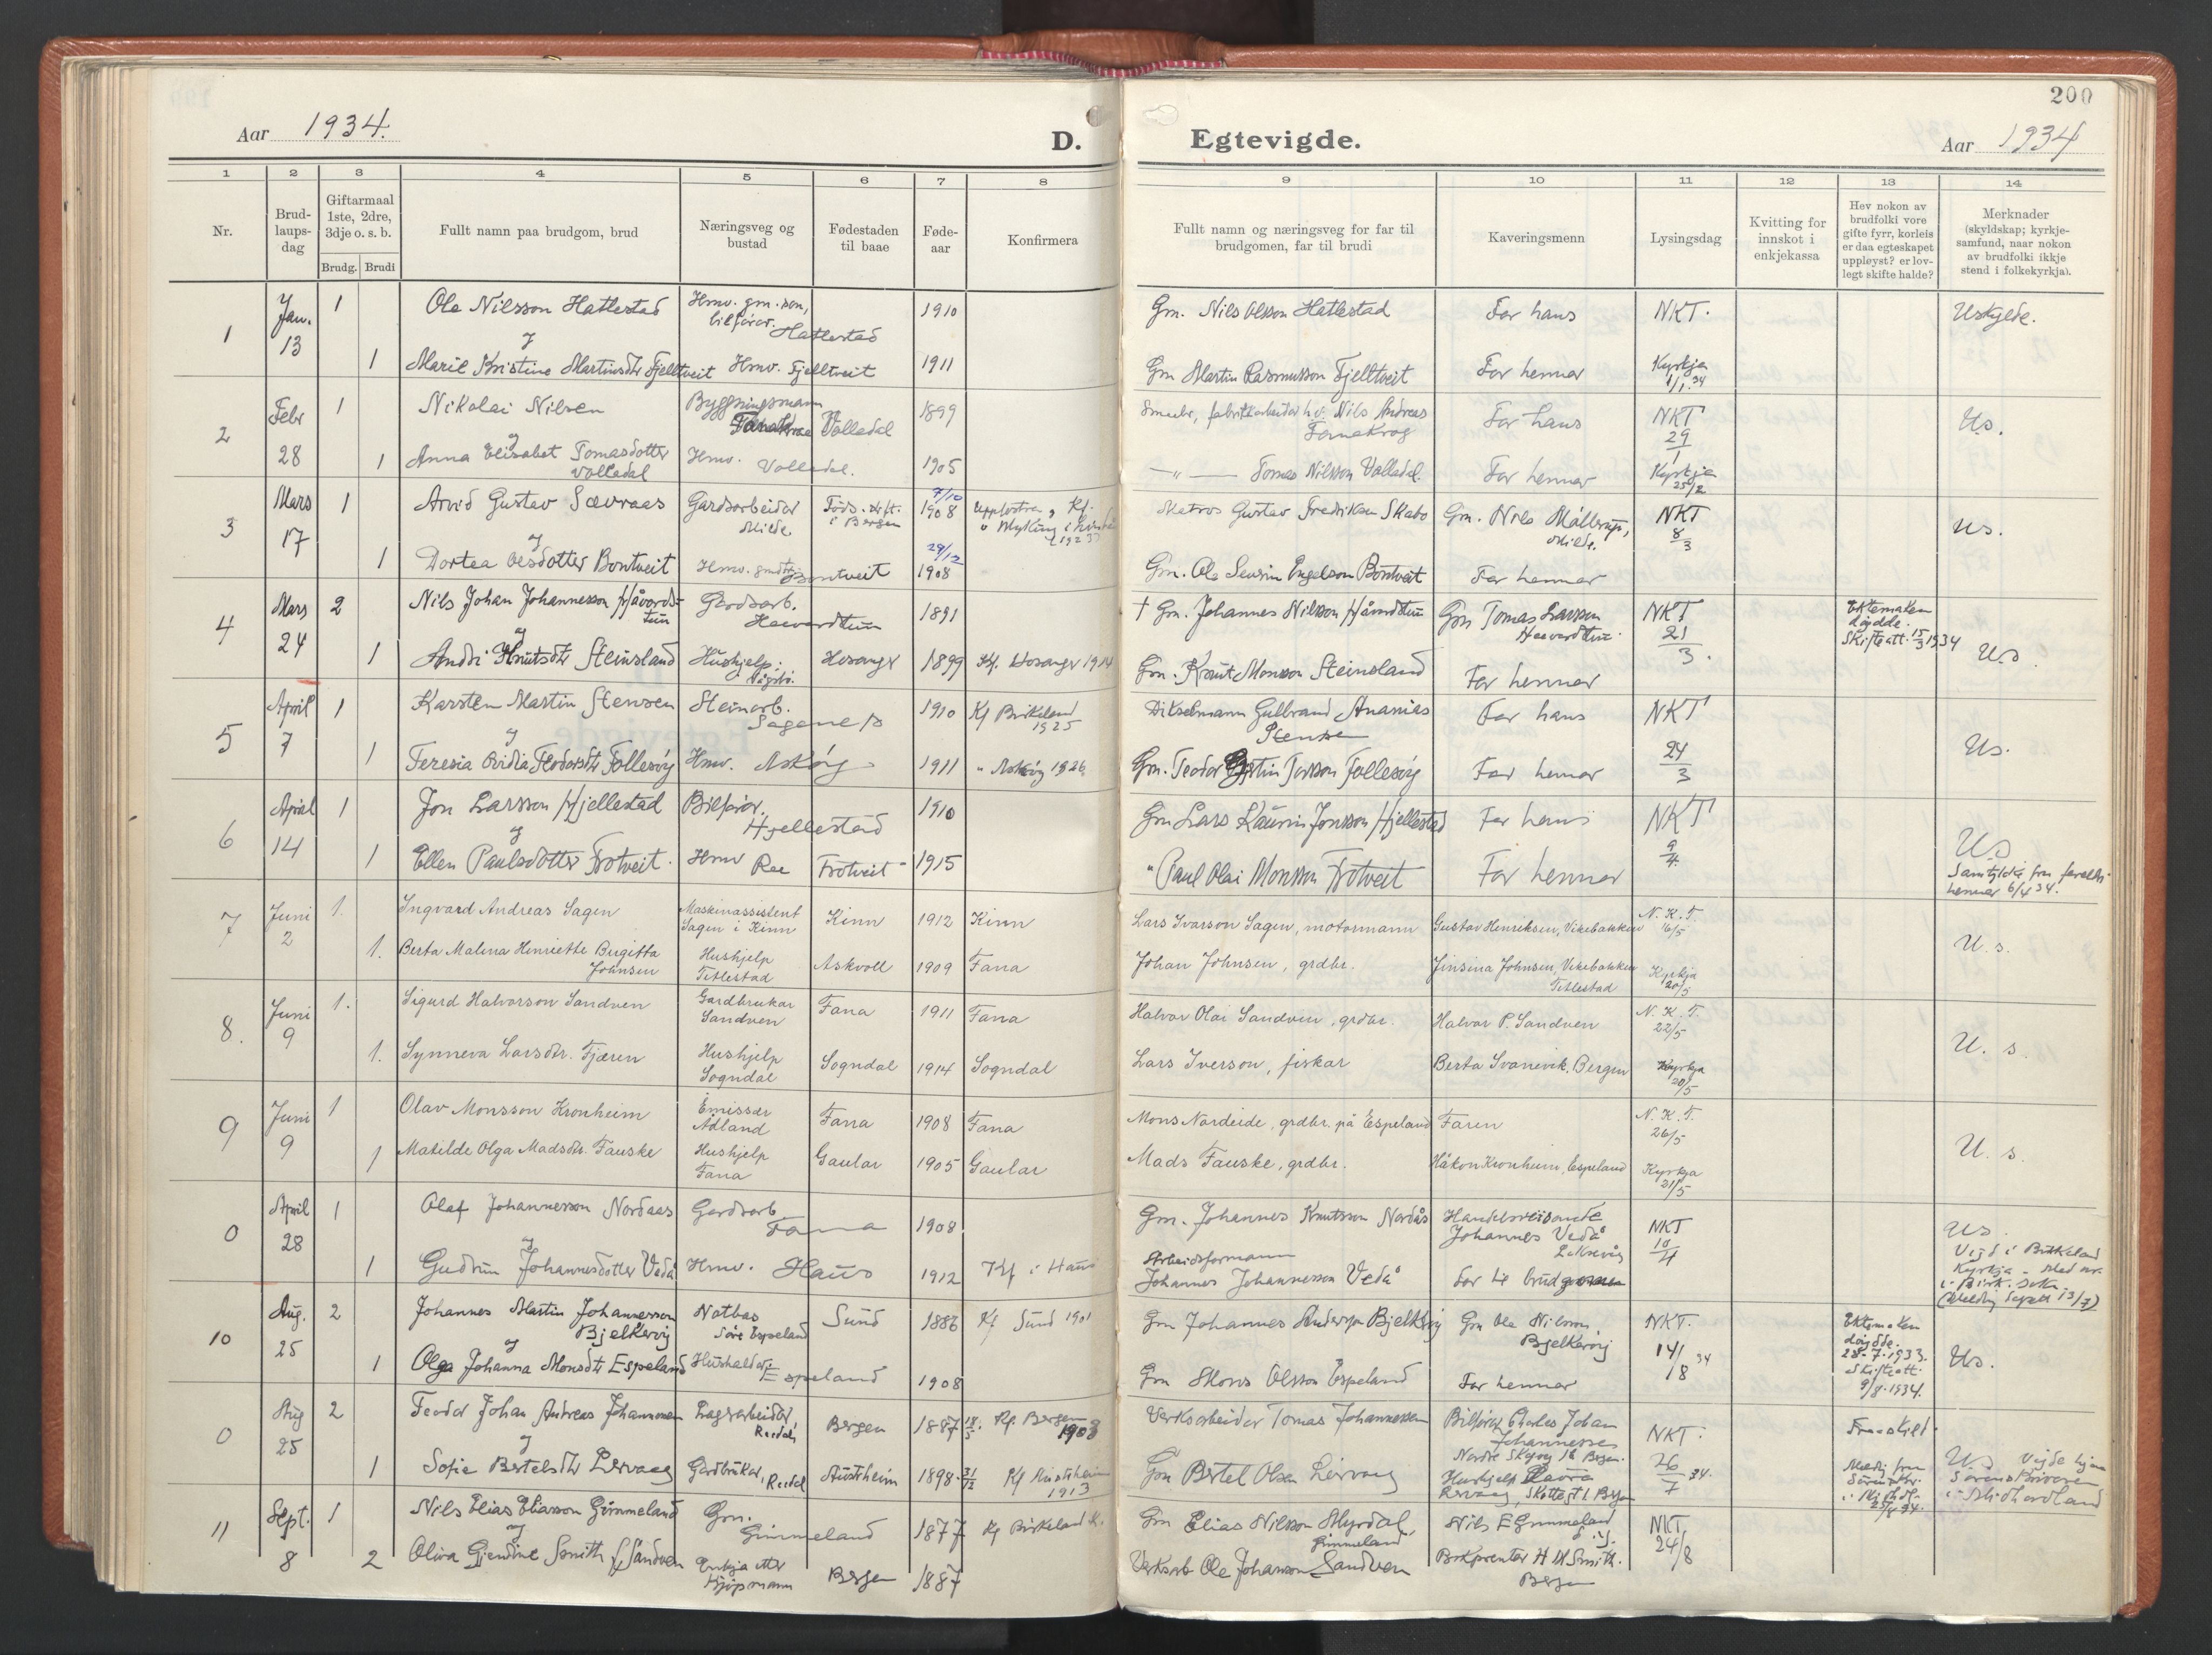 200
Aar 1934.
D.
Egtevigde.
Aar 1934
1 2 3 4 5 6 7 8
9 10 11 12 13 14
Nr.
Brud-
laups-
dag
Giftarmaal
1ste, 2dre,
3dje o. s. b.
Brudg. Brudi
Fullt namn paa brudgom, brud
Næringsveg og
bustad
Fødestaden
til baae
Føde-
aar
Konfirmera
Fullt namn og næringsveg for far til
brudgomen, far til brudi
Kaveringsmenn
Lysingsdag
Kvitting for
innskot i
enkjekassa
Hev nokon av
brudfolki vore
gifte fyrr, korleis
er daa egteskapet
uppløyst? er lov-
legt skifte halde?
Merknader
(skyldskap; kyrkje-
samfund, naar nokon
av brudfolki ikkje
stend i folkekyrkja).
1 Jan. 13 1 Ole Nilsson Hatlestad Hmv. gm. son, bilførar. Hatlestad 1910 Gm. Nils Olsson Hatlestad Far hans NKT. Uskylde.
og
1 Marie Kristine Martinsdtr Fjelltveit Hmv. Fjelltveit 1911 Gm Martin Rasmusson Fjelltveit Far hennar Kyrkja 1/1. 34
2 Febr 28 1 Nikolai Nilsen Bygningsmann Volledal 1899 Smedr, fabrikkarbeidar Nils Andreas Fanakrog Far hans NKT 29/1 Us.
og
1 Anna Elisabet Tomasdotter Volledal Hmv. Volledal. 1905 —"— Tomas Nilsson Volledal. Far hennar Kyrkja 25/2
3 Mars 17 1 Arvid Gustav Sævraas Gardsarbeidar Milde. Føds.st. i Bergen 7/10 1908 Matros Gustav Fredriksen Skabo Gm. Nils Møllerup, Milde. NKT 8/3 Us.
og
1 Dortea Olesdotter Bontveit Hmv. Bontveit 29/12 1908 Gm. Ole Sevrin Engelson Bontveit Far hennar
4 Mars 24 2 Nils Johan Johannesson Håvards- tun Gardsarb. Haavardtun 1891 † Gm. Johannes Nilsson Håvardstun Gm Tomas Larsson Haavardtun NKT 21/3. Ektemaken døydde. Skifteatt. 15/3 1934 Us.
og
1 Andri Knutsdtr Steinsland Hushjelp. Hosanger 1899 Kf. Hosanger 1914 Gm. Knut Monsson Steinsland Far hennar
5 April 7 1 Karsten Martin Stensen Steinarb. Sagene 1910 Kf Birkeland 1925 Dikselmann Gulbrand Ananias Stensen Far hans NKT 24/3 Us.
og
1 Teresia Ovidia Teodorsdtr Follesøy Hmv. Askøy 1911 " Askøy 1926 Gm. Teodor Torsson Follesøy Far hennar
6 April 14 1 Jon Larsson Hjellestad Bilførar. Hjellestad 1910 Gm Lars Kaurin Jonsson Hjellestad Far hans NKT 9/4. Us
og
1 Ellen Paulsdotter Trotveit. Hmv Raa Trotveit 1915 " Paul Olai Monsson Trotveit Far hennar Samtykke fra foreldr. hennar 6/4 34.
7 Juni 2 1. Ingvard Andreas Sagen Maskinassistent Sagen i Kinn Kinn 1912 Kinn Lars Ivarson Sagen, motormann Gustav Henriksen, Vikebakken N. K. T. 16/5 U. s.
1. Berta Malena Henriette Birgitta Johnsen Hushjelp Titlestad Askvoll 1909 Fana Johan Johnsen, grdbr. Jinsina Johnsen, Vikebakken Titlestad Kyrkja 20/5
8. Juni 9 1. Sigurd Halvorson Sandven Gardbrukar Sandven Fana 1911 Fana Halvor Olai Sandven, grdbr. Halvor P. Sandven N. K. T. 22/5 U. s.
1. Synneva Larsdtr. Fjæren Hushjelp Sogndal Sogndal 1914 Sogndal Lars Iverson, fiskar Berta Svanevik, Bergen Kyrkja 20/5
9 Juni 9 1 Olav Monsson Kronheim Emissær Ådland Fana 1908 Fana Mons Nordeide, grdbr. på Espeland Faren N. K. T. 26/5 U. s.
1 Matilde Olga Madsdtr. Fauske Hushjelp Fana Gaular 1905 Gaular Mads Fauske, grdbr. Håkon Kronheim, Espeland Kyrkja 21/5
0 April 28 1 Olaf Johannesson Nordaas Gardsarb. Fana 1908 Gm. Johannes Knutsson Nordås Handelsreisande Johannes Vedå NKT 10/4 Us.
og
1 Gudrun Johannesdotter Vedå Hmv. Haus 1912 Kf i Haus Arbeidsformann Johannes Johannesson Vedå Vigd i Birkeland Kyrkja
10 Aug. 25 2 Johannes Martin Johannesson Bjelkarøy Notbas Søre Espeland Sund 1886 Kf Sund 1901 Gm Johannes Anderson Bjelkarøy Gm Ole Nilsson Bjelkarøy NKT. 14/8 34 Ektemaken døydde. 28-7-1933. Skifteatt. 9/8. 1934. Us.
og
1 Olga Johanna Monsdtr Espeland Hushaldar Espeland 1908 Gm Mons Olsson Espeland Far hennar
0 Aug 25 2 Teodor Johan Andreas Johannessen Lagerarbeidar, Raadal Bergen 1887 18/5. Kf. Bergen 1903 Verksarbeidar Tomas Johannessen Bilførar Charles Johan Johannessen Nordre Skogvei Bergen. NKT. 26/7 34. Fraskild. Us Vigde hjaa
og
1 Sofie Bertelsdtr Lervaag Gardbrukar, Raadal Austrheim 1898. 31/12 Kf Austrheim 1913 Gm Bertel Olsen Lervaag Hushjelp Laura Lervaag, Skottegt. Bergen Sorenskrivaren i Midhordland
11 Sept. 8 1 Nils Elias Eliasson Gimmeland Gm. Gimmeland 1877 Kf Birkeland K. Gm Elias Nilsson Myrdal, Gimmeland Nils E Gimmeland NKT, 24/8
og
2 Oliva Gjendine Smith f. Sandven Enkja etter kjøpmann Bergen 1887 Verksarb Ole Johanson Sandven Bokprentar H M Smith. Bergen